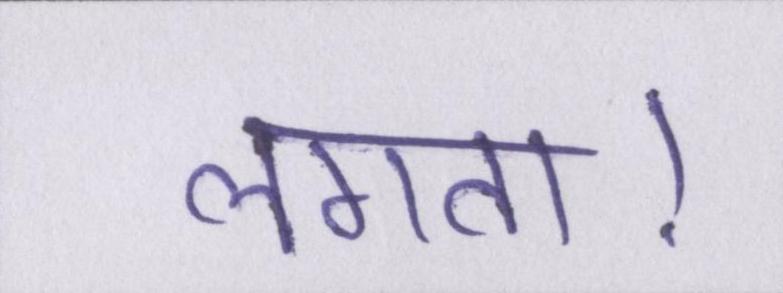 लगता!